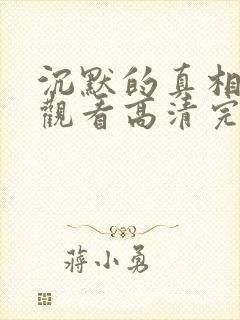 沉默的真相
觀看高清完
蔣小勇